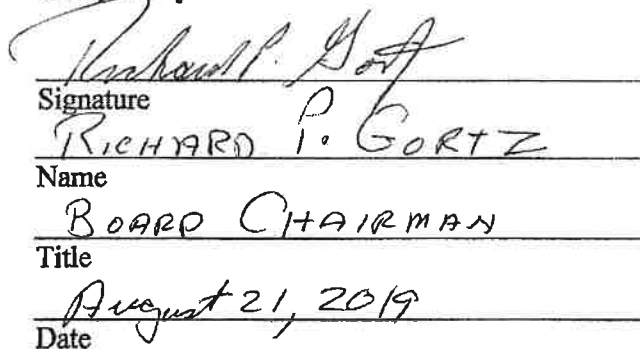 Richard P. Gortz
Signature
RICHARD P. GORTZ
Name
BOARD CHAIRMAN
Title
August 21, 2019
Date